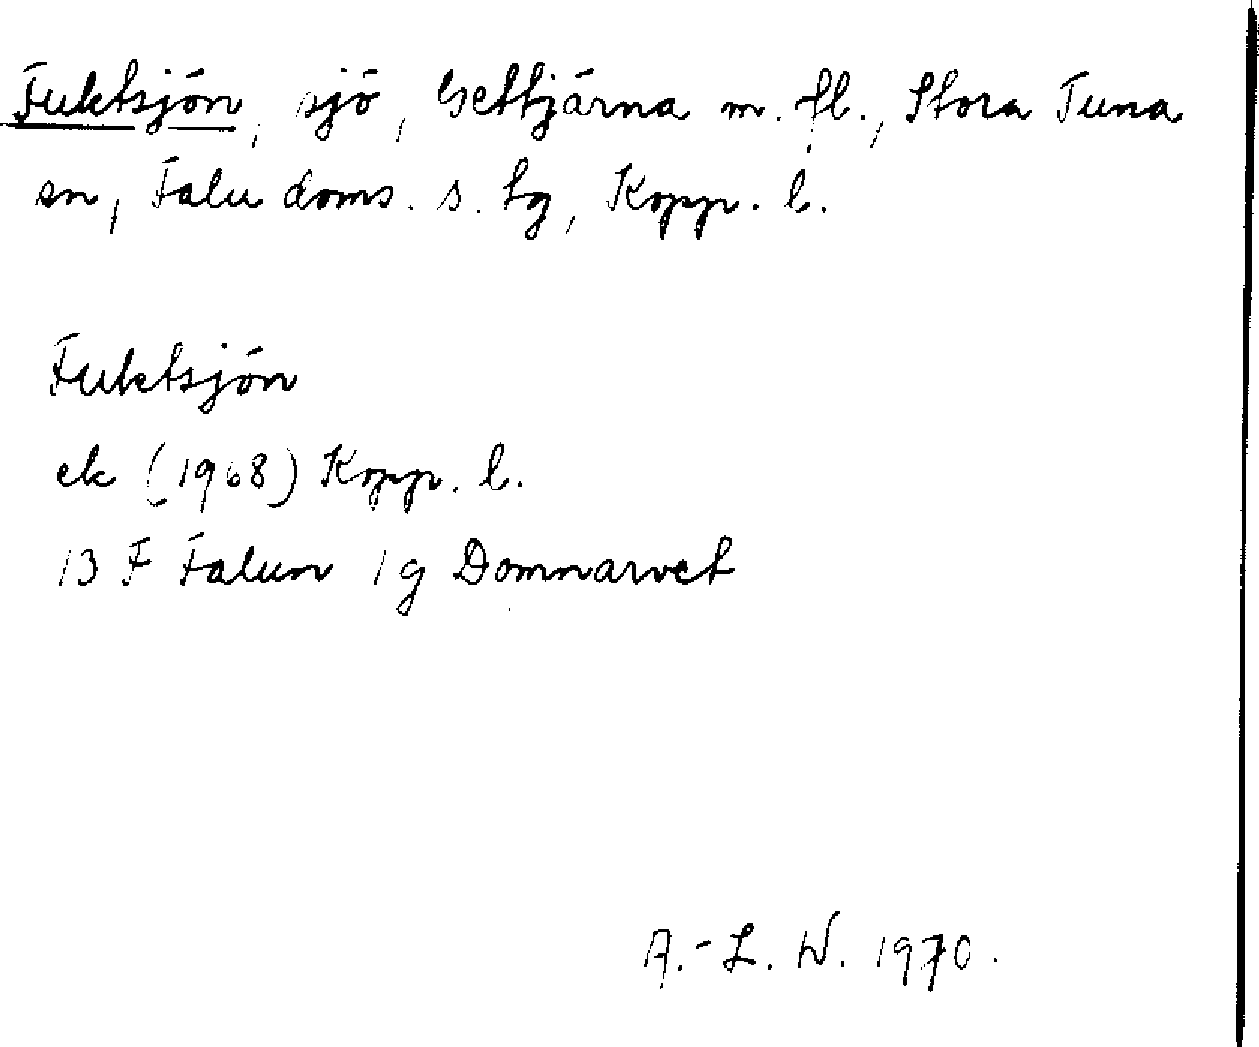 Fuktsjön, sjö, Gettjärna m. fl., Stora Tuna
sn, Falu doms. s. tg, Kopp. l.
Fuktsjön
ek (1968) Kopp. l.
13 F Falun 1 g Domnarvet
A.-L. W. 1970.